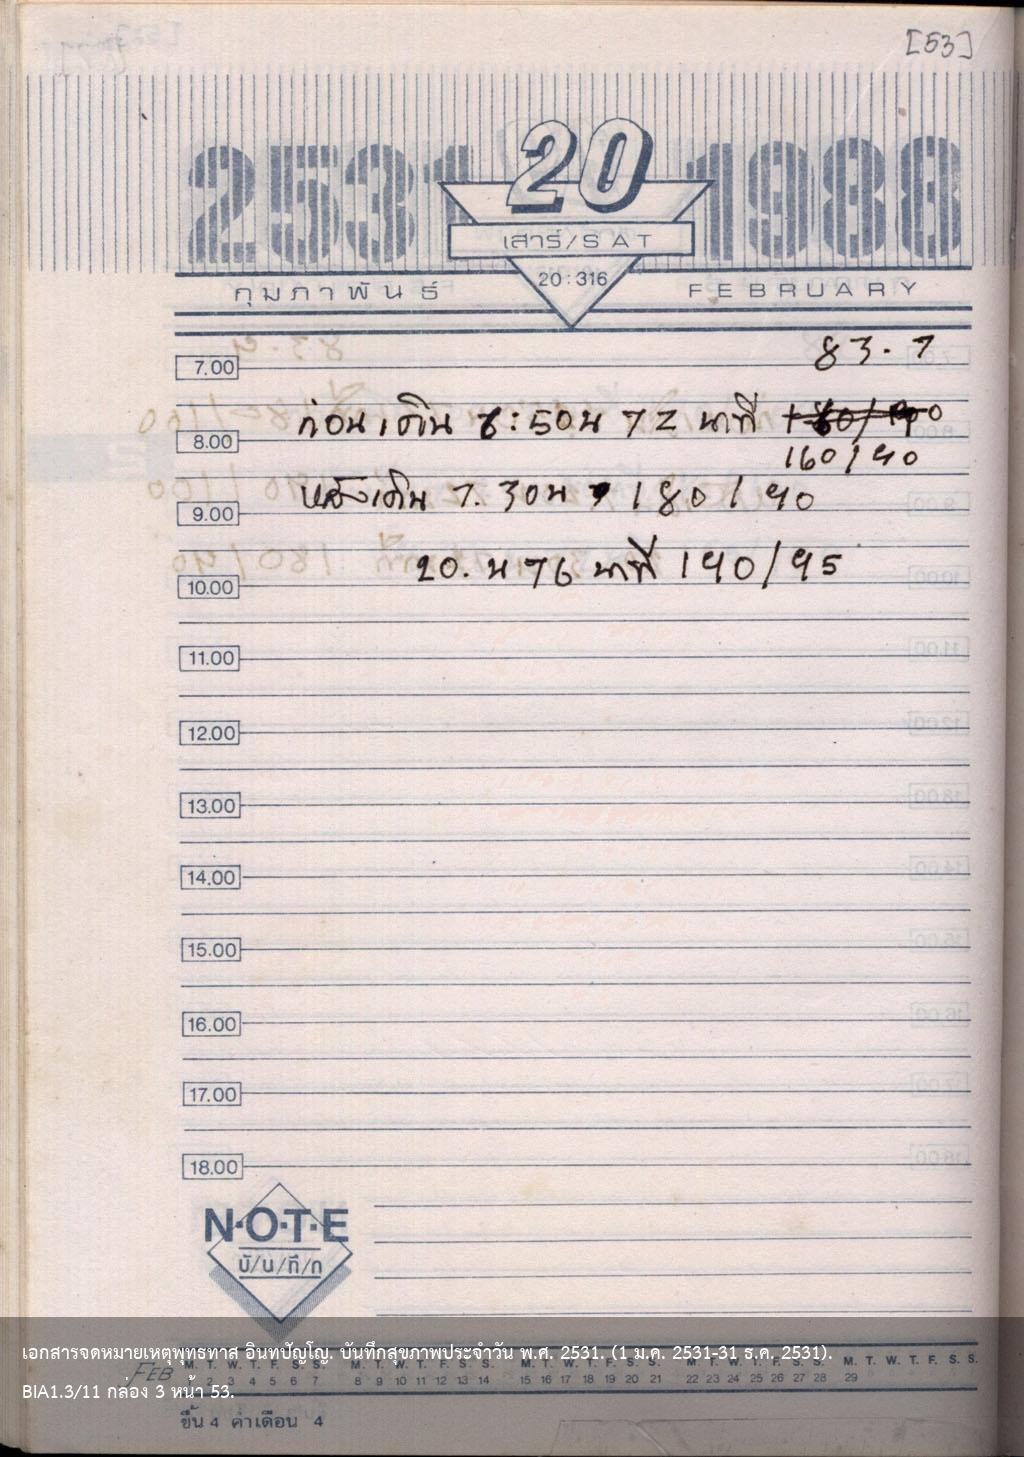 [53]
2531 20 1988
เสาร์/SAT
20:316
กุมภาพันธ์ FEBRUARY
83.7
7.00
ก่อนเดิน 6:50น 72 นาที
8.00
160/90
หลังเดิน 7.30น 180/90
9.00
20. น 76 นาที 190/95
10.00
11.00
12.00
13.00
14.00
15.00
16.00
17.00
18.00
N·O·T·E
บั/น/ทึ/ก
เอกสารจดหมายเหตุพุทธทาส อินทปัญโญ. บันทึกสุขภาพประจำวัน พ.ศ. 2531. (1 ม.ค. 2531-31 ธ.ค. 2531).
FEB M. T. W. T. F. S. S. M. T. W. T. F. S. S. M. T. W. T. F. S. S. M. T. W. T. F. S. S. M. T. W. T. F. S. S.
1 2 3 4 5 6 7 8 9 10 11 12 13 14 15 16 17 18 19 20 21 22 23 24 25 26 27 28 29
BIA1.3/11 กล่อง 3 หน้า 53.
ขึ้น 4 ค่ำเดือน 4